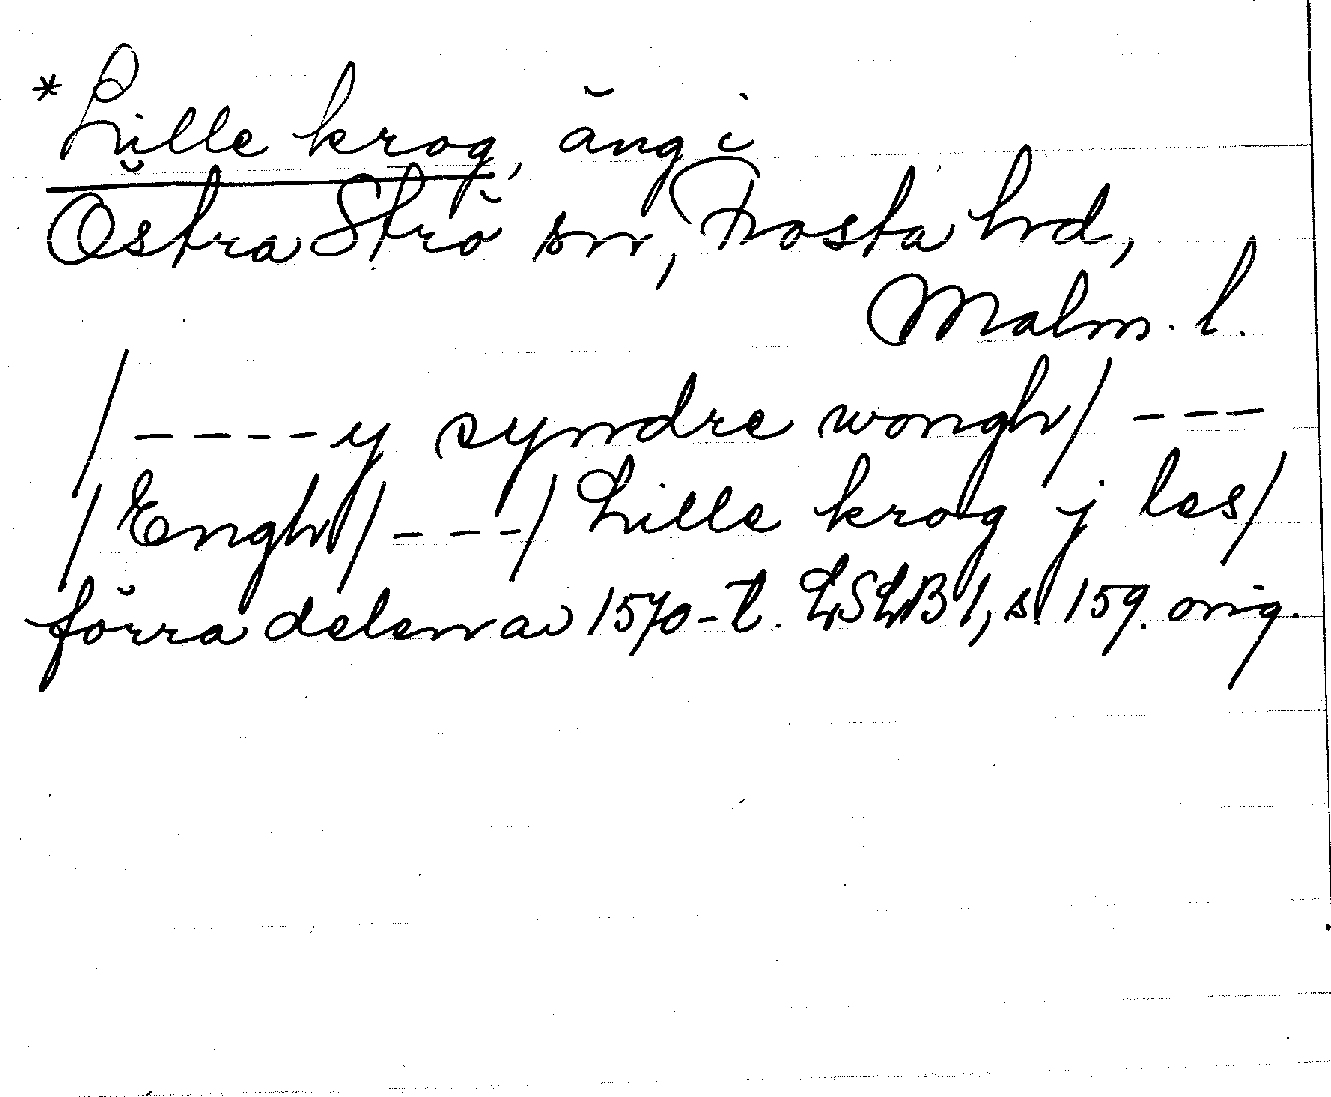 *Lille krog, äng i
Östra Strö sn, Frosta hd,
Malm. l.
/----y syndre wongh/ ---
/Engh/---/Lille krog j les/
förra delen av 1570-t. LSLB 1, s 159. orig.